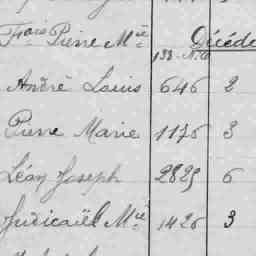 Fois Pierre Mie Décéde
André Louis 646 2
Pierre Marie 1176 3
Léon Joseph 2829 6
Judicaël Mie 1426 3